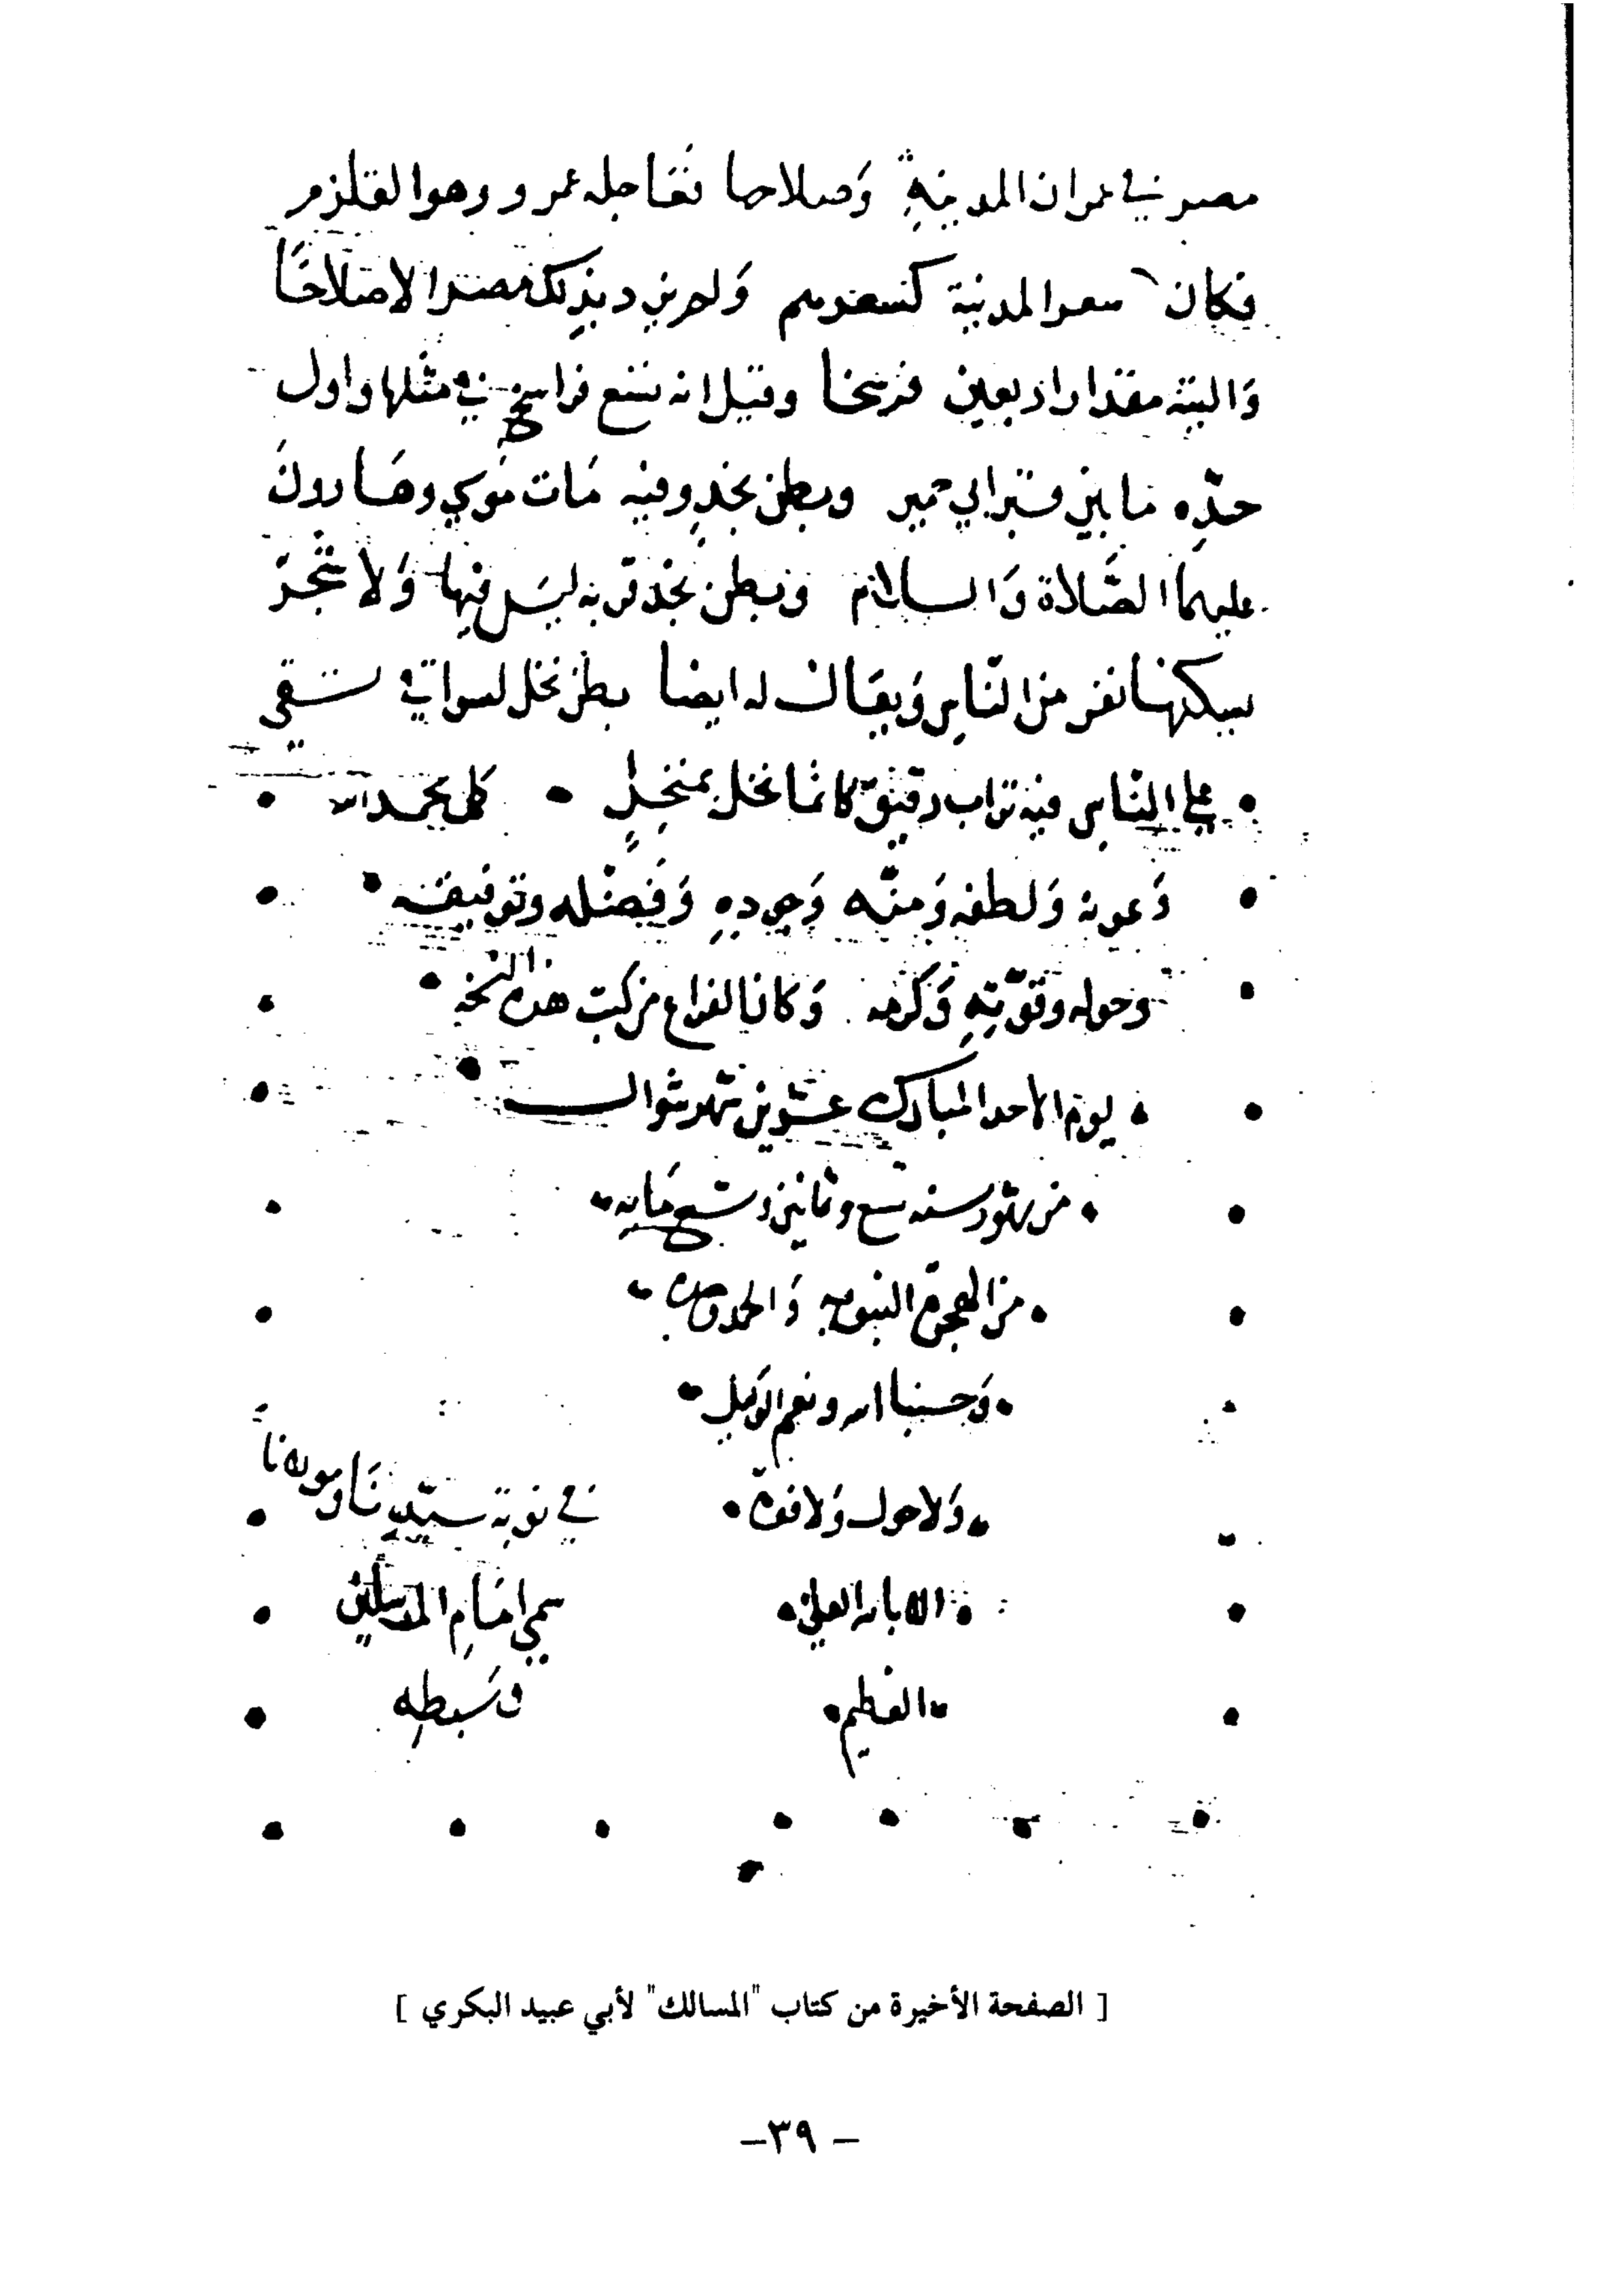 مصر في عمران المدينة وصلاحها فعاجله عمرو وهو القلزم
فكان سعر المدينة كسعرهم ولم يزد بذلك مصر الا صلاحًا
والتيه مقدار اربعين فرسخا وقيل انه تسع فراسخ في مثلها واول
حدّه ما بين قبر ابي حمير وبطن نخد وفيه مات موسى وهارون
عليهما الصّلاة والسلام وبطن نخد قريه ليس فيها ولا شجر
يسكنها نفر من النّاس ويقال له ايضا بطن نخل لسواقي تسقى
على النّاس فيه تراب دقيق كانما نخل بمنخل كمل بحمد الله
وعونه ولطفه ومنّه وجوده وفضله وتوفيقه
وحوله وقوّته وكرمه وكان الفراغ من كتب هذه النسخه
يوم الاحد المبارك عشرين شهر شوال
من شهور سنه تسع وثمانين وتسع مايه
من الهجرة النبويه والحمد لله وحده
وحسبنا الله ونعم الوكيل
ولا حول ولا قوة في نوبة سيّدنا ومولانا
الا بالله العلي سمي امام المرسلين
العظيم وسبطه
[ الصفحة الأخيرة من كتاب "المسالك" لأبي عبيد البكري ]
– ٣٩–